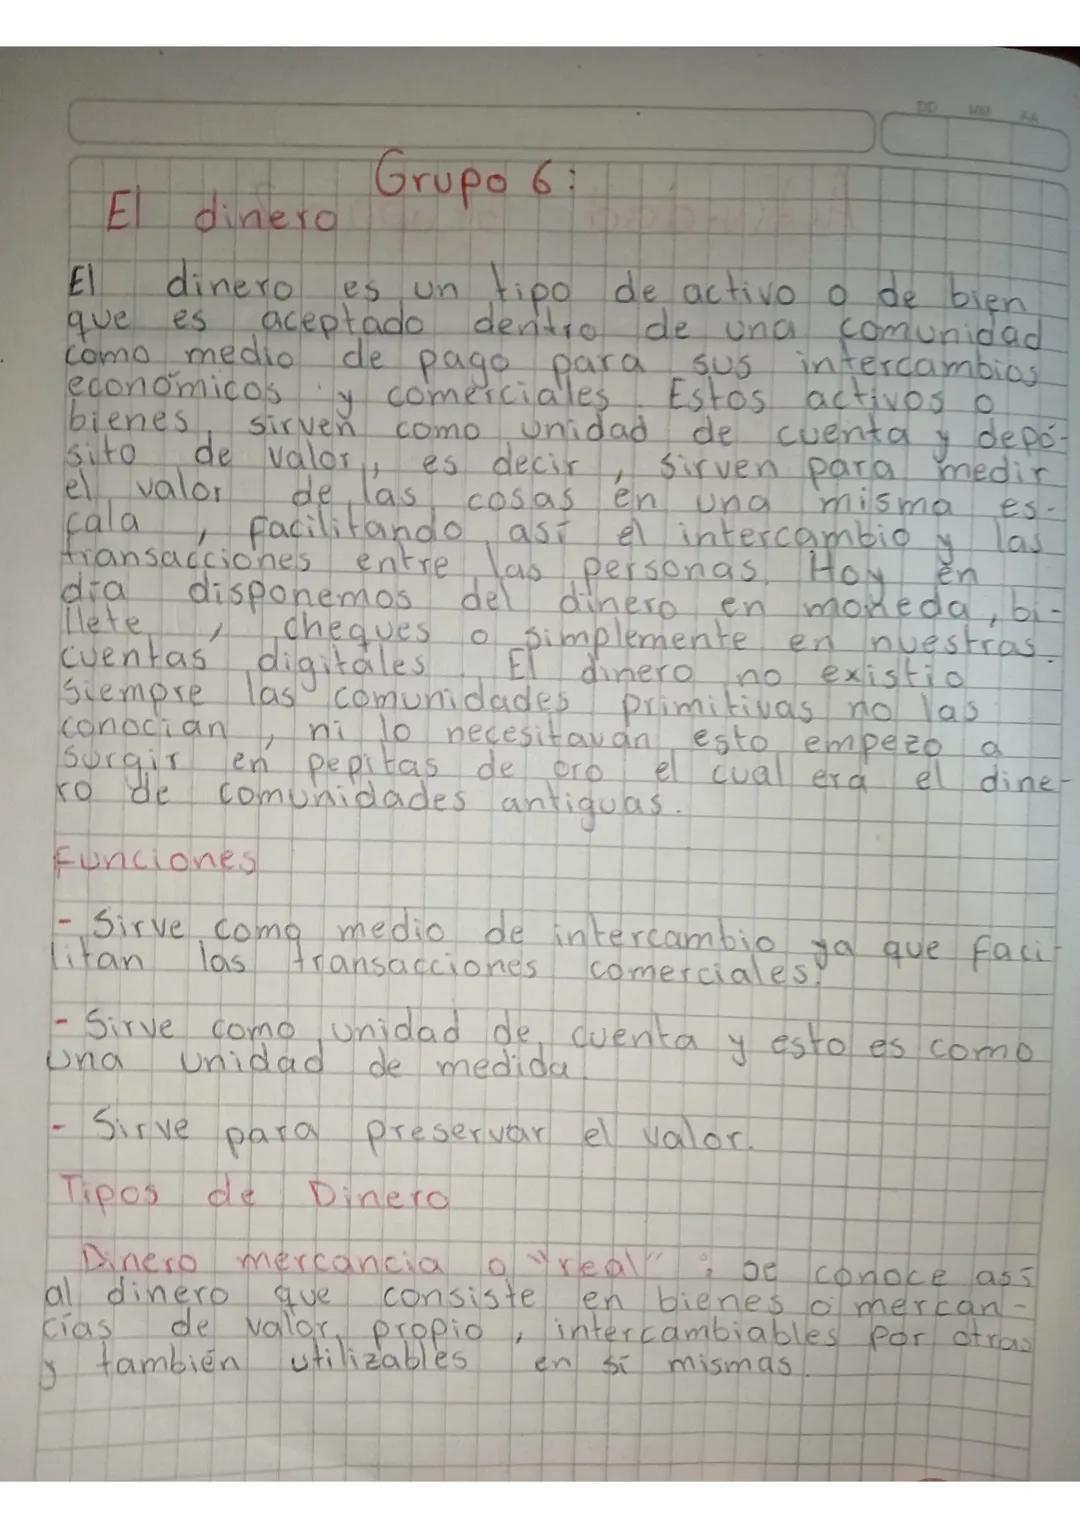 DD MM AA
Grupo 6:
El dinero
El dinero es un tipo de activo o de bien
que es aceptado dentro de una comunidad
como medio de pago para sus intercambios
económicos y comerciales. Estos activos o
bienes, sirven como unidad de cuenta y depó-
sito de valor, es decir, sirven para medir
el valor de las cosas en una misma es-
cala, facilitando así el intercambio y las
transacciones entre las personas. Hoy en
día disponemos del dinero en moneda, bi-
llete, cheques o simplemente en nuestras
cuentas digitales. El dinero no existio
siempre las comunidades primitivas no las
conocian, ni lo necesitavan esto empezo a
surgir en pepitas de oro el cual era el dine-
ro de comunidades antiguas.
Funciones
- Sirve como medio de intercambio ya que faci
litan las transacciones comerciales.
- Sirve como unidad de cuenta y esto es como
una unidad de medida
- Sirve para preservar el valor.
Tipos de Dinero
Dinero mercancia o "real" ; se conoce así
al dinero que consiste en bienes o mercan-
cías de valor propio, intercambiables por otras
y también utilizables en sí mismas.